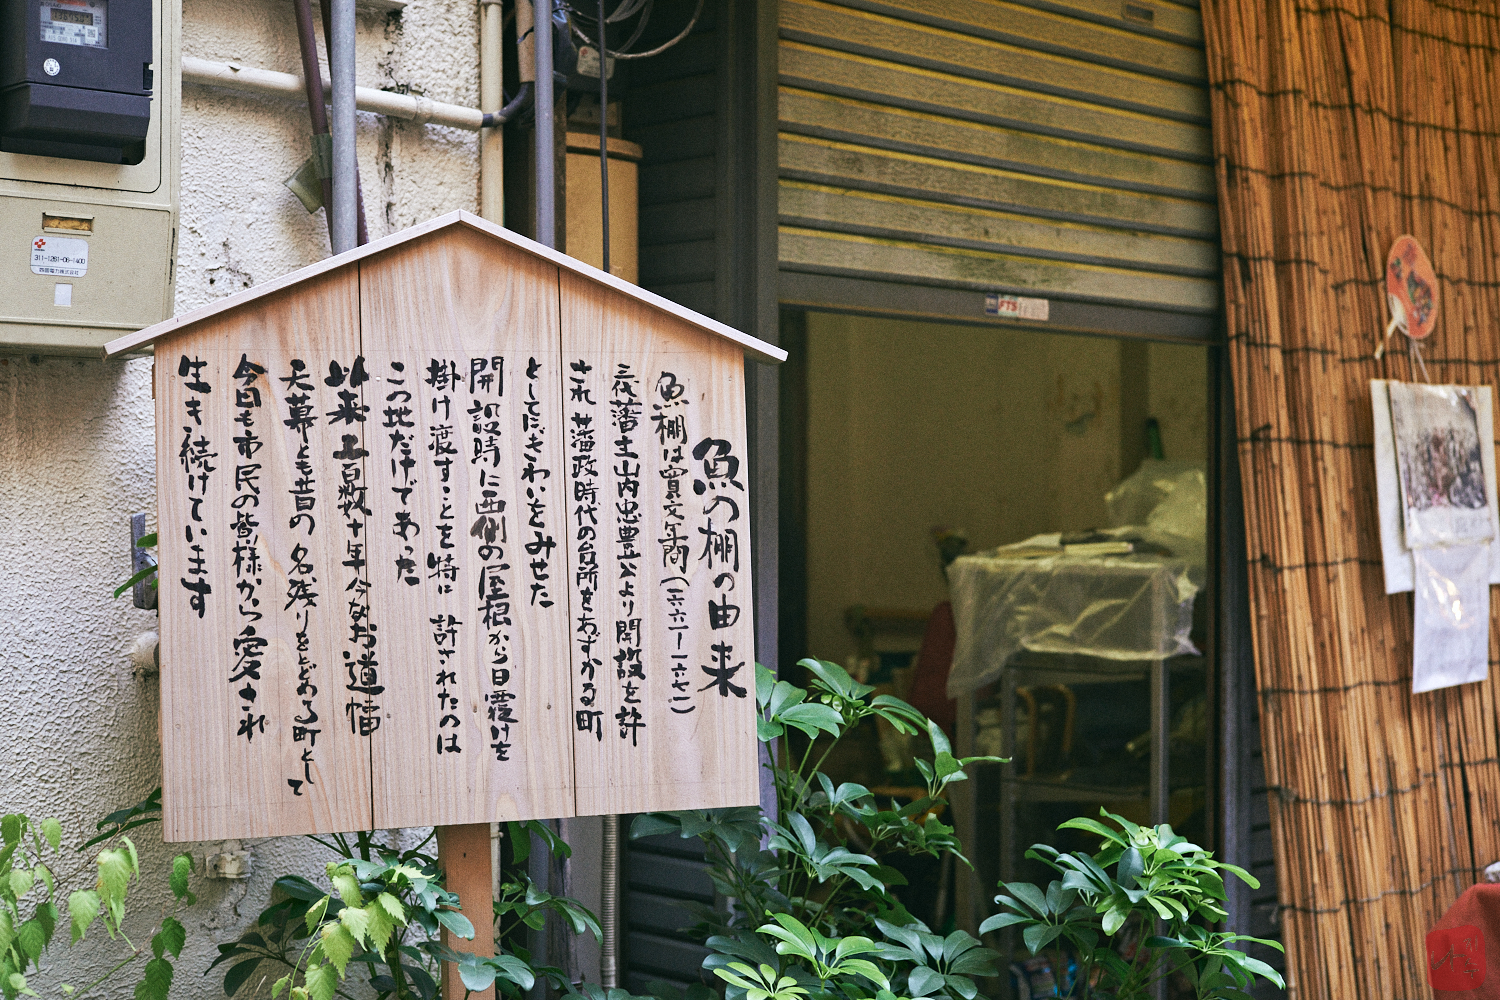 魚の棚の由来
魚棚は寛文年間(一六六一ー一六七一)
三代藩主山内忠豊公より開設を許
され 藩政時代の台所をあずかる町
としてにぎわいをみせた
開設時に西側の屋根から日覆けを
掛け渡すことを特に 許されたのは
この地だけであった
以来三百数十年今なお道幅
天幕とも昔の名残りをとどめる町として
今日も市民の皆様から愛され
生き続けています
311-1261-06-1400
四国電力株式会社
FTS